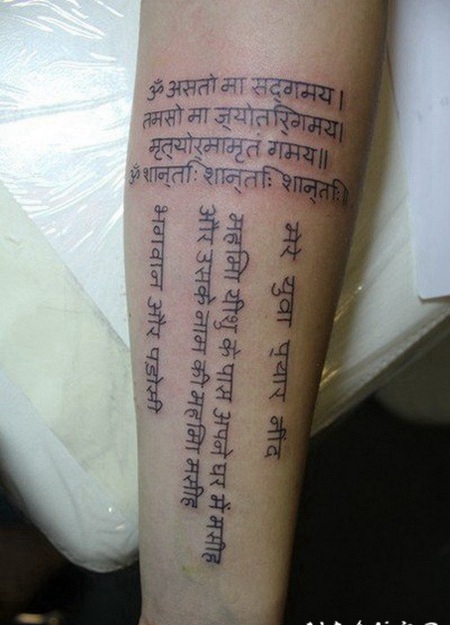 ॐ असतो मा सद्‌गमय।
तमसो मा ज्‌योतरि्‌गमय।
मृत्‌योर्‌मामृतं गमय॥
ॐ शान्‌तःि शान्‌तःि शान्‌तःि॥
मेरे युवा प्‌यार नींद
महमिा यीशु के पास अपने घर में मसीह
और उसके नाम की महमिा मसीह
भगवान और पड़ोसी